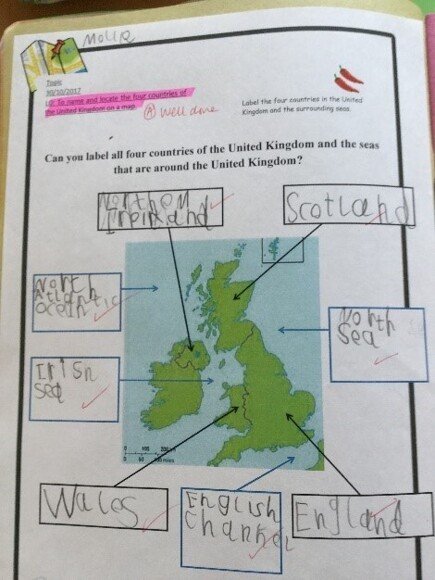 Mollie
Topic
30/10/2017
LO: To name and locate the four countries of
the United Kingdom on a map.
Well done
Label the four countries in the United
Kingdom and the surrounding seas.
Can you label all four countries of the United Kingdom and the seas
that are around the United Kingdom?
Northern
Scotland
North
Atlantic
Ocean
North
Sea
Irish
sea
0 100 200
0 50
Wales
English
Channel
England